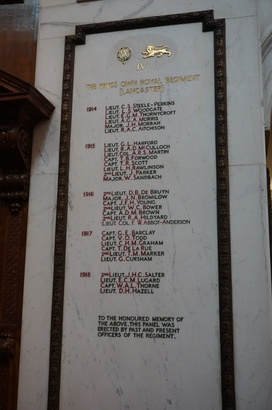 IV
THE KING'S OWN ROYAL REGIMENT
[LANCASTER]
1914 CAPT. C.S. STEELE-PERKINS
LIEUT. L.S. WOODGATE
LIEUT. E.G.M. THORNYCROFT
LIEUT. A.G.A. MORRIS
MAJOR. J.H. MORRAH
LIEUT. R.A.C. AITCHISON
1915 LIEUT. G.L. HARFORD
LIEUT. R.A.D. MCCULLOCH
LIEUT. COL. A.R.S. MARTIN
CAPT. T.B. FORWOOD
CAPT. T.R. SCOTT
LIEUT. L.H. RAWLINSON
2ND LIEUT. J. PARKER
MAJOR. W. SANDBACH
1916 2ND LIEUT. D.B. DE BRUYN
MAJOR. J.N. BROMILOW
CAPT. J.F.H. YOUNG
2ND LIEUT. W.C. BOWER
CAPT. A.D.M. BROWN
2ND LIEUT. R.A. HILDYARD
LIEUT. COL. F.W. ABBOT-ANDERSON
1917 CAPT. G.E. BARCLAY
CAPT. V.D. TODD
LIEUT. C.H.M. GRAHAM
CAPT. T. DE LA RUE
2ND LIEUT. T.M. MARKER
LIEUT. G. CURSHAM
1918 2ND LIEUT. J.H.C. SALTER
LIEUT. E.C.M. LUGARD
CAPT. W.A.L. THORNE
LIEUT. D.H. HAZELL
TO THE HONOURED MEMORY OF
THE ABOVE, THIS PANEL WAS
ERECTED BY PAST AND PRESENT
OFFICERS OF THE REGIMENT.